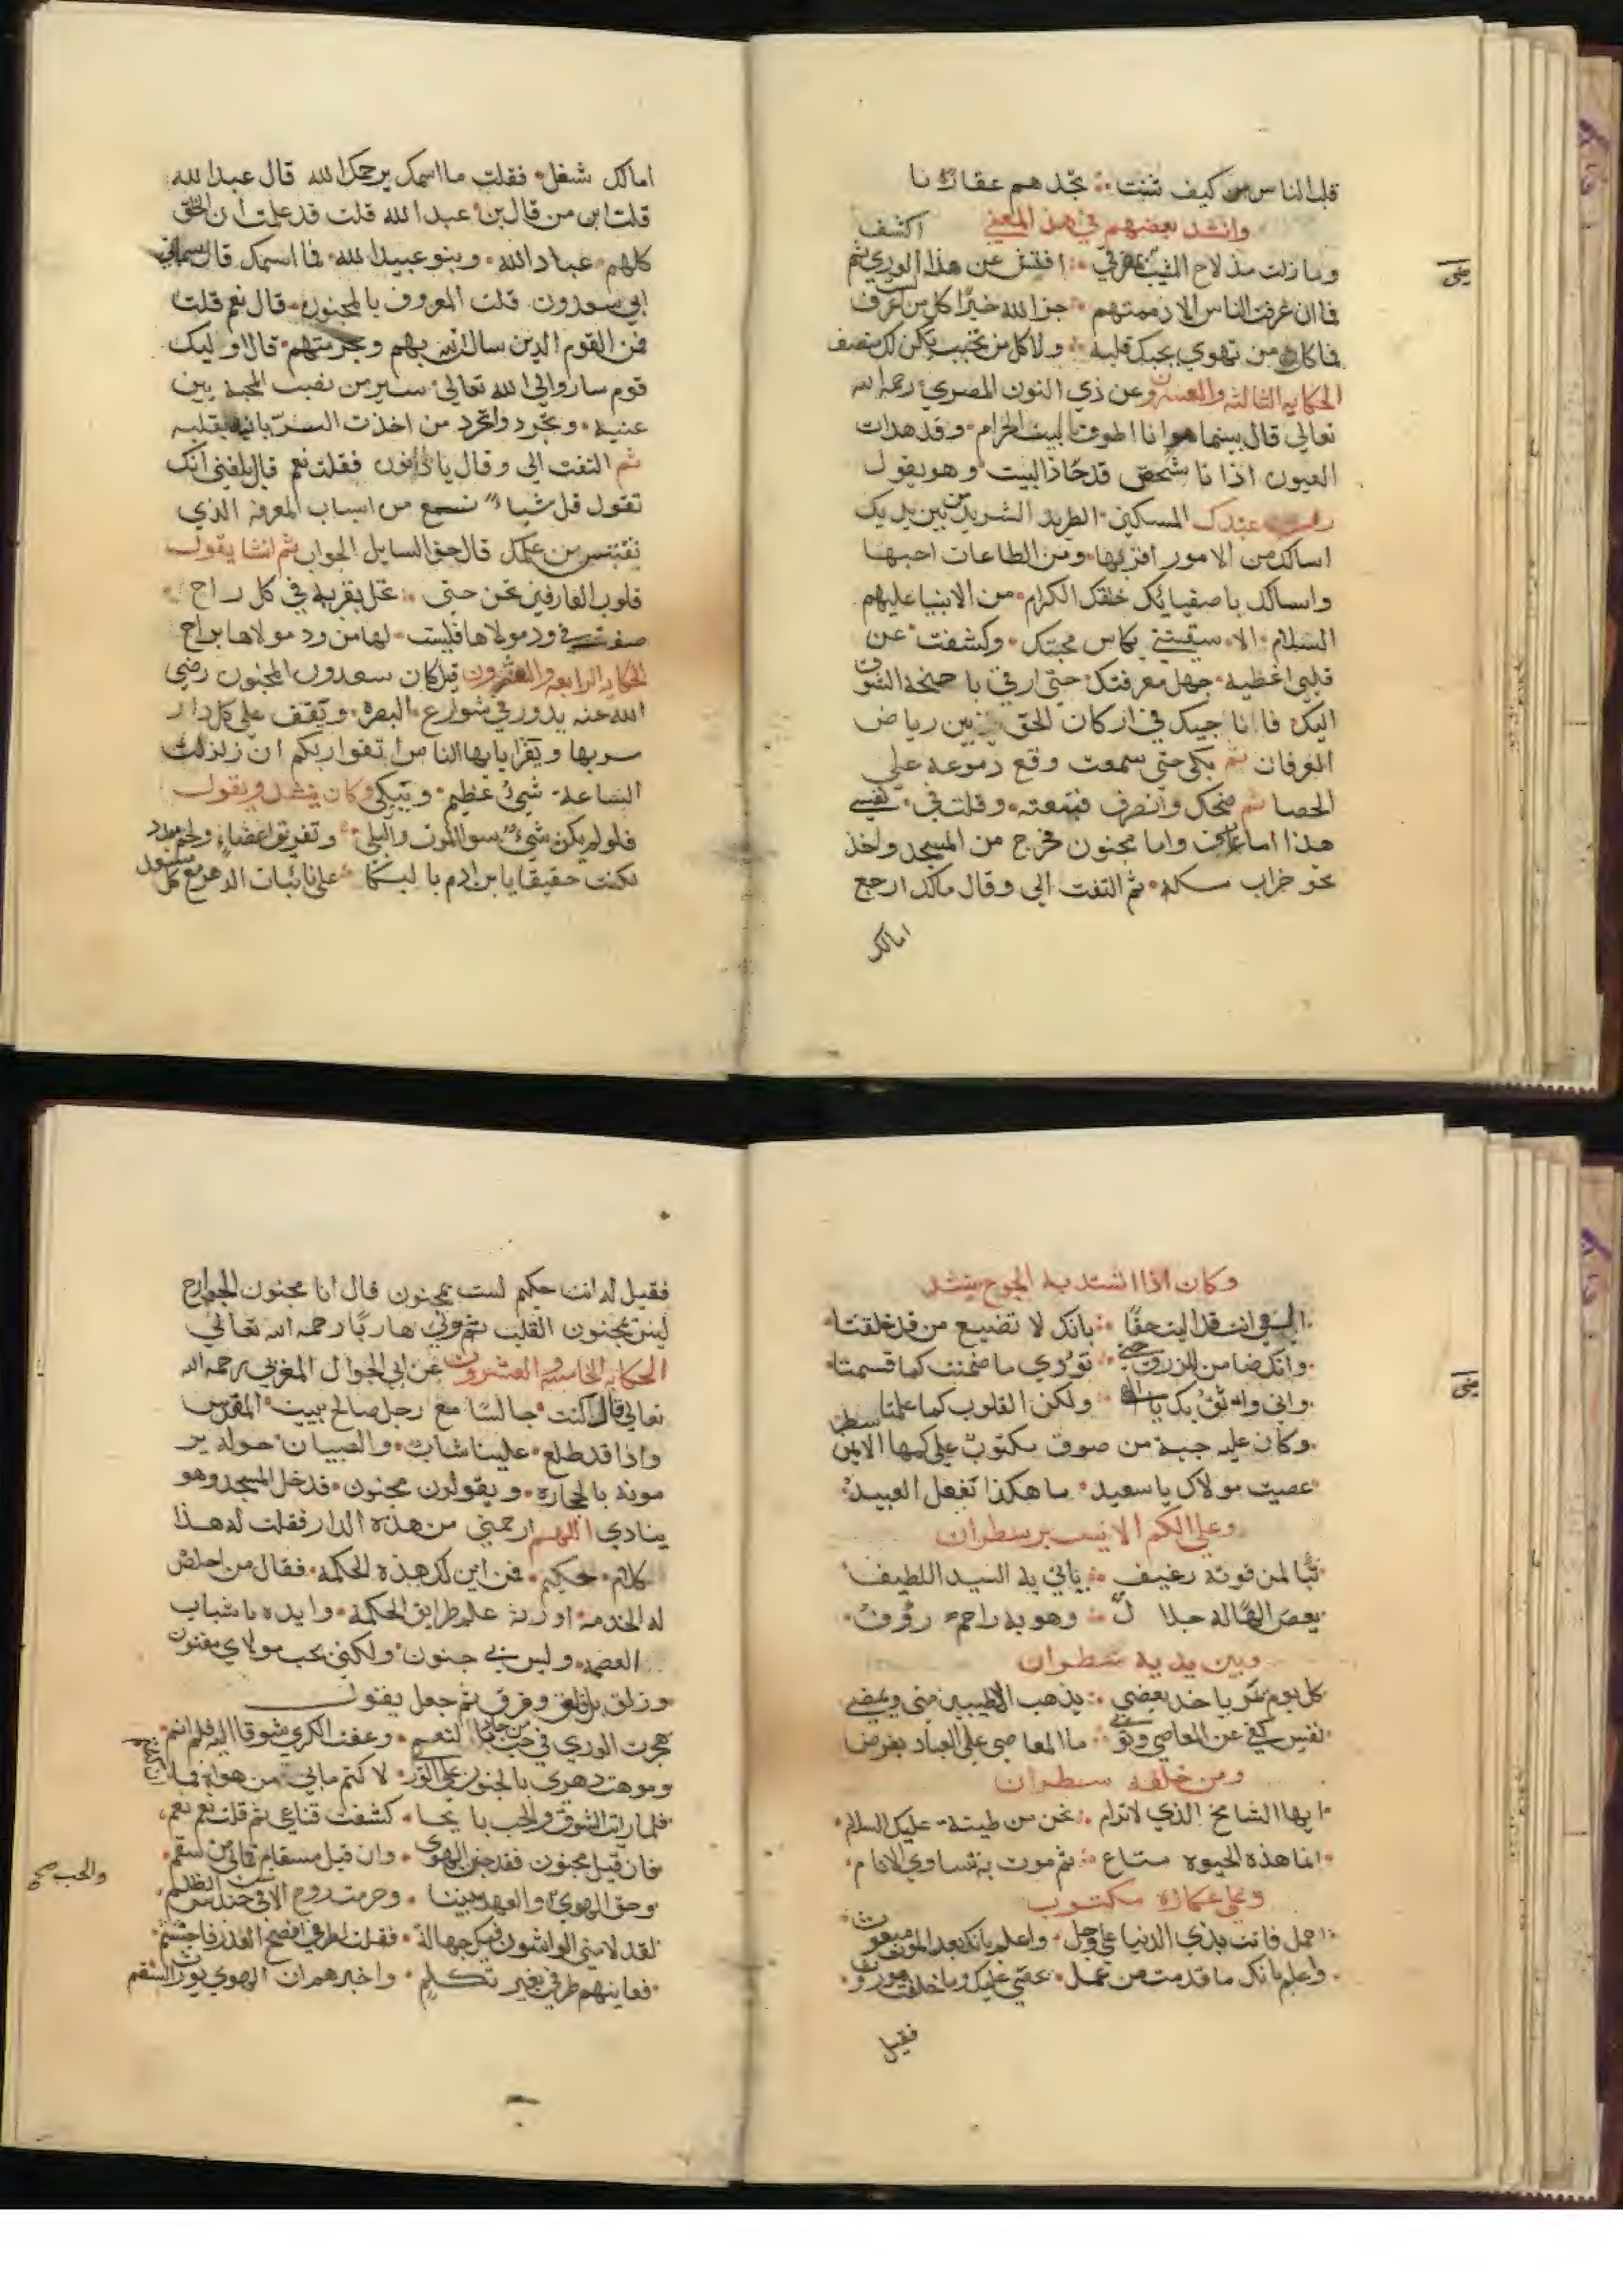 قلب الناس كيف شئت ∴ تجدهم عقاربا
وانشد بعضهم في هذا المعني
وما زلت مذ لاح الشيب بمفرقي ∴ افتش عن هذا الوري ثم اكشف
فما ان عرفت الناس الا ذممتهم ∴ جزا الله خيرًا كل من اعرف
فما كل من تهوي يحبك قلبه ∴ ولا كل من تحبب يكن لك منصف
الحكاية الثالثة والعشرون عن ذي النون المصري رحمه الله
تعالي قال بينما انا اطوف بالبيت الحرام وقد هدات
العيون اذا نا شخص قد حاذا البيت وهو يقول
رب عبدك المسكين الطريد الشريد من بين يديك
اسالك من الامور اقربها ومن الطاعات احبها
واسالك باصفيايك خلقك الكرام من الانبيا عليهم
السلام الا سقيتني بكاس محبتك وكشفت عن
قلبي اغطيه جهل معرفتك حتي ارقي با جنحة الشوق
اليك فا نا جيك في اركان الحق بين رياض
العرفان ثم بكي حتي سمعت وقع دموعه علي
الحصا ثم ضحك وانصرف فتبعته وقلت في نفسي
هذا اما عارف واما مجنون فخرج من المسجد واخذ
نحو خراب مكة ثم التفت الي وقال مالك ارجع
امالك
امالك شغل فقلت ما اسمك يرحمك الله قال عبد الله
قلت ابن من قال بن عبد الله قلت قد علمت ان الخلق
كلهم عباد الله وبنو عبيد الله فما اسمك قال سماني
ابي سعدون قلت المعروف بالمجنون قال نعم قلت
فمن القوم الذين سالت الله بهم وبحرمتهم قال اوليك
قوم ساروا الي الله تعالي سير من نصب المحبة بين
عنيه وتجرد تجرد من اخذت الزبانية بقلبه
ثم التفت الي وقال يا ذا النون فقلت نعم قال بلغني انك
تقول قل شياء نسمع من اسباب المعرفة الذي
نقتبس من علمك قال حق السايل الجواب ثم انشا يقول
قلوب العارفين تحن حتي ∴ تحل بقربه في كل راح
صفت في ود مولاها فليست لها من ود مولاها براح
الحكاية الرابعة والعشرون قيل كان سعدون المجنون رضي
الله عنه يدور في شوارع البصرة ويقف علي كل دار
يمر بها ويقرا يا يها الناس اتقوا ربكم ان زلزلت
الساعة شيئ عظيم ويبكي وكان ينشد ويقول
فلو لم يكن شيئ سوا الموت والبلي وتفريق اعضاء ولحم مبدد
لكنت حقيقا يا بن ادم با لبكا علي نائبات الدهر مع كل مسعد
وكان اذا اشتد به الجوع ينشد
الهي انت قد اليت حقًا ∴ بانك لا تضيع من قد خلقتا
وانك ضامن للرزق حتي ∴ تؤدي ما ضمنت كما قسمتا
واني واثق بك يا الهي ∴ ولكن القلوب كما علمتا
وكان عليه جبة من صوف مكتوب علي كمها الايمن سطر
عصيت مولاك يا سعيد ما هكذا تفعل العبيد
وعلي الكم الايسر سطران
تبًا لمن قوته رغيف ∴ ياتي به السيد اللطيف
يعصي الهًا له جلا ل ∴ وهو به راحم رؤوف
وبين يديه سطران
كل يوم يمر ياخذ بعضي ∴ يذهب الاطيبين مني ويمضي
نفس كفي عن المعاصي وتوبي ∴ ما المعاصي علي العباد بفرض
ومن خلفه سطران
ايها الشامخ الذي لا ترام ∴ نحن من طينة عليك السلام
انما هذه الحيوة متاع ∴ ثم موت به تساوي الانام
وعلي عكازه مكتوب
اعمل فانت بذي الدنيا علي وجل واعلم بانك بعد الموت مبعوث
واعلم بانك ما قدمت من عمل محصي عليك وما خلفت موروث
فقيل
فقيل له انت حكيم لست بمجنون قال انا مجنون الجوارح
ليس مجنون القلب ثم ولي هاربًا رحمه الله تعالي
الحكاية الخامسة والعشرون عن ابي الجوال المغربي رحمه الله
تعالي قال كنت جالسًا مع رجل صالح ببيت المقدس
واذا قد طلع علينا شاب والصبيان حوله ير
مونه بالحجارة ويقولون مجنون فدخل المسجد وهو
ينادي اللهم ارحمني من هذه الدار فقلت له هذا
كلام حكيم فمن اين لك هذه الحكمة فقال من اخلص
له الخدمة اورثه علم طرايق الحكمة وايده باسباب
العصمة وليس بي جنون ولكني بحب مولاي مفتون
وزلق وفرق ثم جعل يقول
هجرت الوري في حب من جاد بالنعم وعفت الكري شوقا اليه فلم انم
وموهت دهري بالجنون علي الوري لاكتم ما بي من هواه فما انكتم
فلما رايت الشوق والحب با يحا كشفت قناعي ثم قلت نعم نعم
فان قيل مجنون فقد جنني الهوي وان قيل مسقام فما بي من سقم
وحق الهوي والعهد بيننا وحرمة روح الانس في حندس الظلم
والحب صح
لقد لامني الواشون فيك جهالة فقلت لطرفي افصح العذر فاحتشم
فعاينهم طرفي بغير تكلم واخبرهم ان الهوي يورث السقم